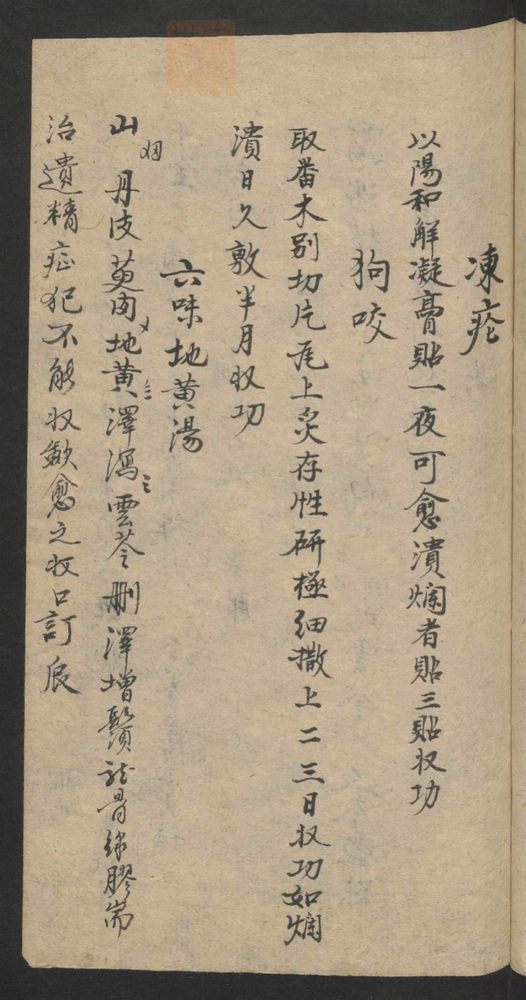 凍瘡
以陽和解凝膏貼一夜可愈潰爛者貼三貼收功
狗咬
取畨木別切片尾上炙存性研極細撒上二三日收功如爛
潰日久敷半月收功
六味地黃湯
山 丹皮萸肉地黃澤瀉雲苓刪澤增鬚龍骨線膠常
治遺精症犯不能收歛愈之收口訂辰